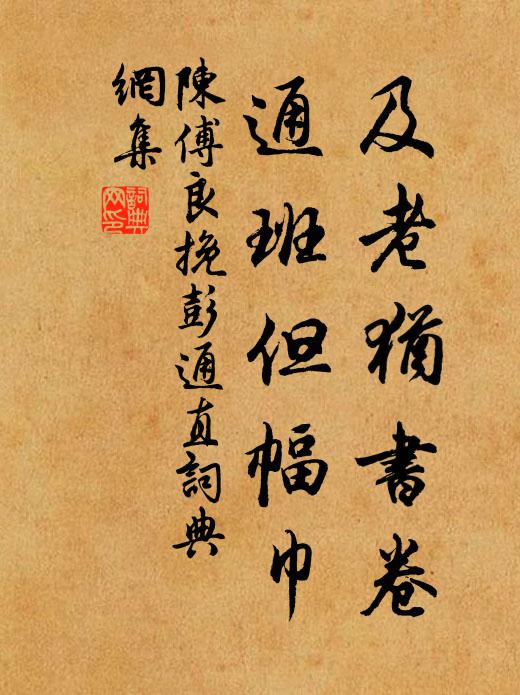 及老猶書卷
通班但幅巾
陳傅良挽彭通直詞典
網集
詞典
网印